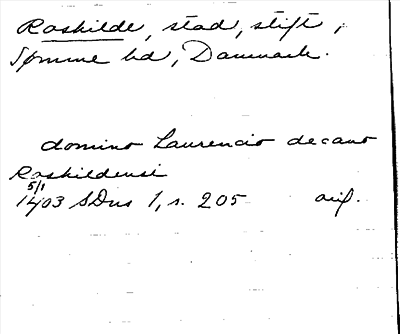 Roskilde, stad, stift,
Sømme hd, Danmark.
domino Laurencio decano
Roskildensi
5/1
1403 SDns 1, s. 205 orig.